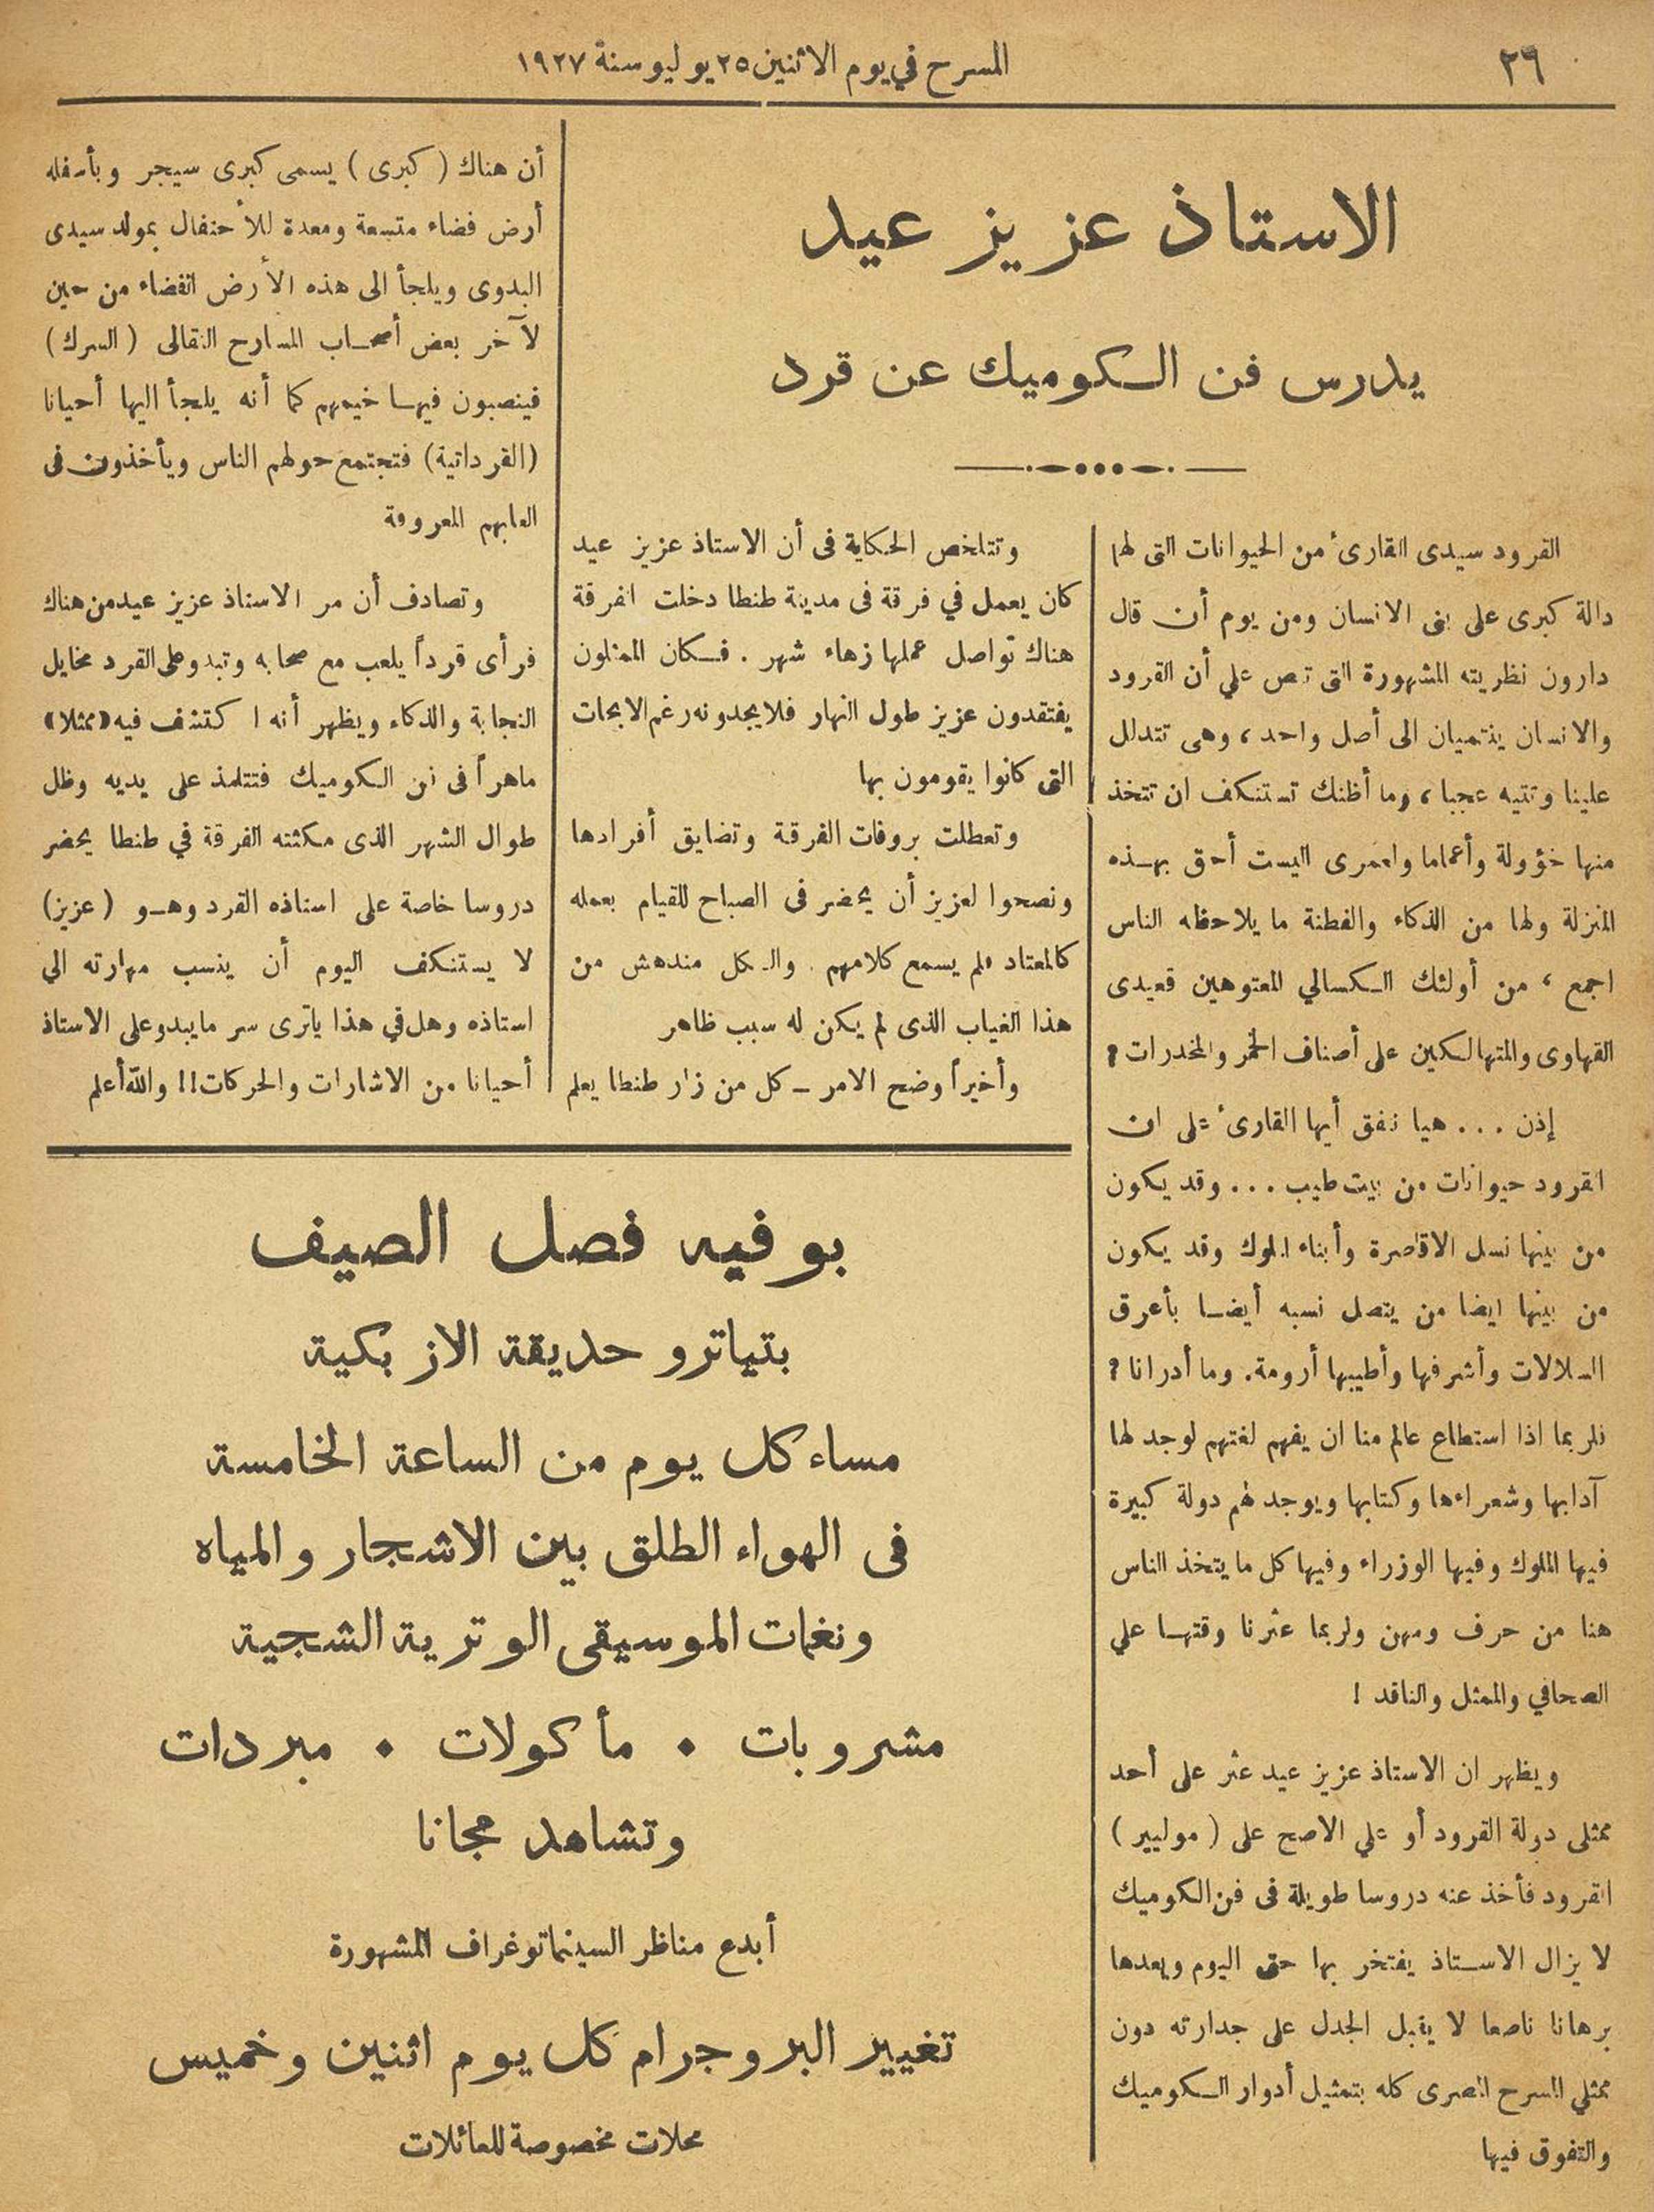 ٢٦
المسرح في يوم الاثنين ٢٥ يوليو سنة ١٩٢٧
الاستاذ عزيز عيد
يدرس فن الكوميك عن قرد
القرود سيدى القارىء من الحيوانات التى لها
دالة كبرى على بنى الانسان ومن يوم أن قال
دارون نظريته المشهورة التى تنص علي أن القرود
والانسان ينتميان الى أصل واحد، وهى تتدلل
علينا وتتيه عجبا، وما أظنك تستنكف ان تتخذ
منها خؤولة وأعماما ولعمرى اليست أحق بهذه
المنزلة ولها من الذكاء والفطنة ما يلاحظه الناس
اجمع، من أولئك الكسالي المعتوهين قعيدى
القهاوى والمتهالكين على أصناف الخمر والمخدرات؟
إذن ... هيا نفق أيها القارىء على ان
القرود حيوانات من بيت طيب ... وقد يكون
من بينها نسل الاقاصرة وأبناء الملوك وقد يكون
من بينها ايضا من يتصل نسبه أيضا بأعرق
السلالات وأشرفها وأطيبها أرومة. وما أدرانا؟
فلربما اذا استطاع عالم منا ان يفهم لغتهم لوجد لها
آدابها وشعراءها وكتابها ويوجد لهم دولة كبيرة
فيها الملوك وفيها الوزراء وفيها كل ما يتخذ الناس
هنا من حرف ومهن ولربما عثرنا وقتها علي
الصحافي والممثل والناقد !
ويظهر ان الاستاذ عزيز عيد عثر على أحد
ممثلى دولة القرود أو علي الاصح على ( موليير )
القرود فأخذ عنه دروسا طويلة فى فن الكوميك
لا يزال الاستاذ يفتخر بها حتى اليوم ويعدها
برهانا ناصعا لا يقبل الجدل على جدارته دون
ممثلي المسرح المصرى كله بتمثيل أدوار الكوميك
والتفوق فيها
وتتلخص الحكاية فى أن الاستاذ عزيز عيد
كان يعمل في فرقة فى مدينة طنطا دخلت الفرقة
هناك تواصل عملها زهاء شهر . فكان الممثلون
يفتقدون عزيز طول النهار فلا يجدونه رغم الابحاث
التى كانوا يقومون بها
وتعطلت بروفات الفرقة وتضايق أفرادها
ونصحوا لعزيز أن يحضر فى الصباح للقيام بعمله
كالمعتاد فلم يسمع كلامهم . والكل مندهش من
هذا الغياب الذى لم يكن له سبب ظاهر
وأخيراً وضح الامر ــ كل من زار طنطا يعلم
أن هناك ( كبرى ) يسمى كبرى سيجر وبأسفله
أرض فضاء متسعة ومعدة للأحتفال بمولد سيدى
البدوى ويلجأ الى هذه الأرض الفضاء من حين
لآخر بعض أصحاب المسارح النقالى ( السرك )
فينصبون فيها خيمهم كما أنه يلجأ اليها أحيانا
(القرداتية) فتجتمع حولهم الناس ويأخذون فى
العابهم المعروفة
وتصادف أن مر الاستاذ عزيز عيد من هناك
فرأى قرداً يلعب مع صحابه وتبدو على القرد مخايل
النجابة والذكاء ويظهر أنه اكتشف فيه «ممثلا»
ماهراً فى فن الكوميك فتتلمذ على يديه وظل
طوال الشهر الذى مكثته الفرقة في طنطا يحضر
دروسا خاصة على استاذه القرد وهو ( عزيز )
لا يستنكف اليوم أن ينسب مهارته الي
استاذه وهل في هذا ياترى سر ما يبدو على الاستاذ
أحيانا من الاشارات والحركات!! والله أعلم
بوفيه فصل الصيف
بتياترو حديقة الازبكية
مساء كل يوم من الساعة الخامسة
فى الهواء الطلق بين الاشجار والمياه
ونغمات الموسيقى الوترية الشجية
مشروبات • مأكولات • مبردات
وتشاهد مجانا
أبدع مناظر السينماتوغراف المشهورة
تغيير البروجرام كل يوم اثنين وخميس
محلات مخصوصة للعائلات